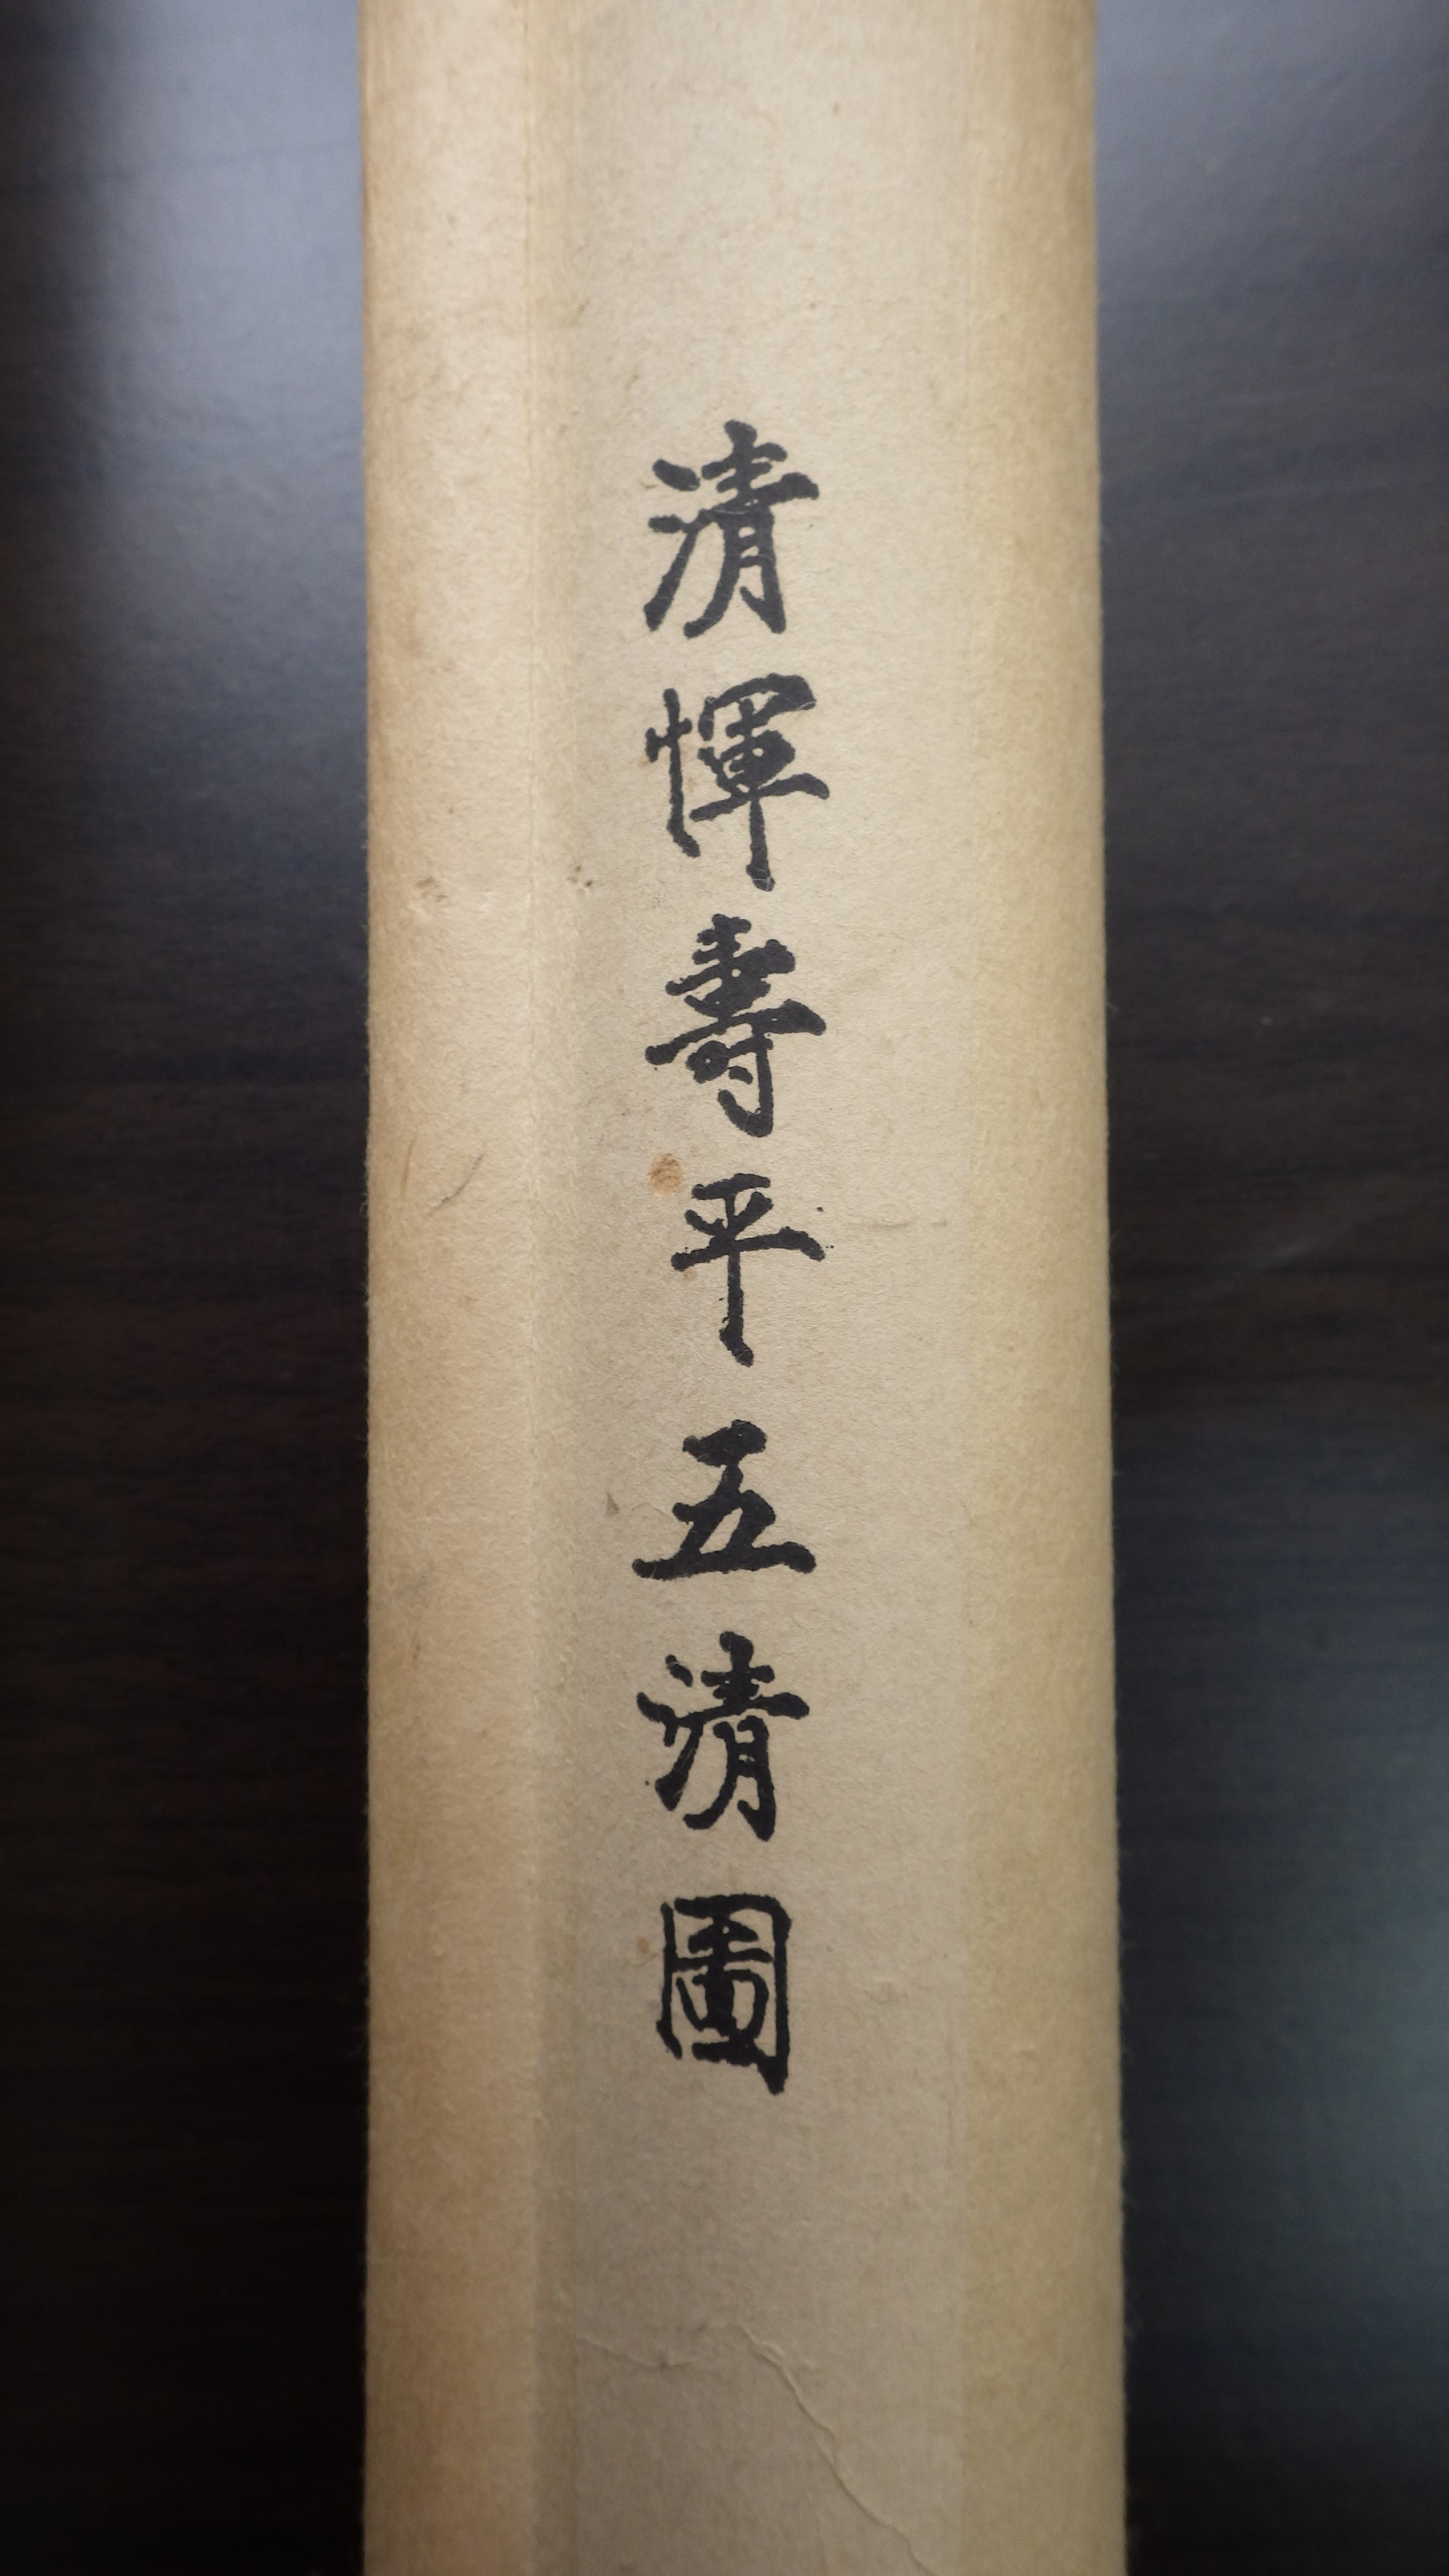 清惲壽平五清圖